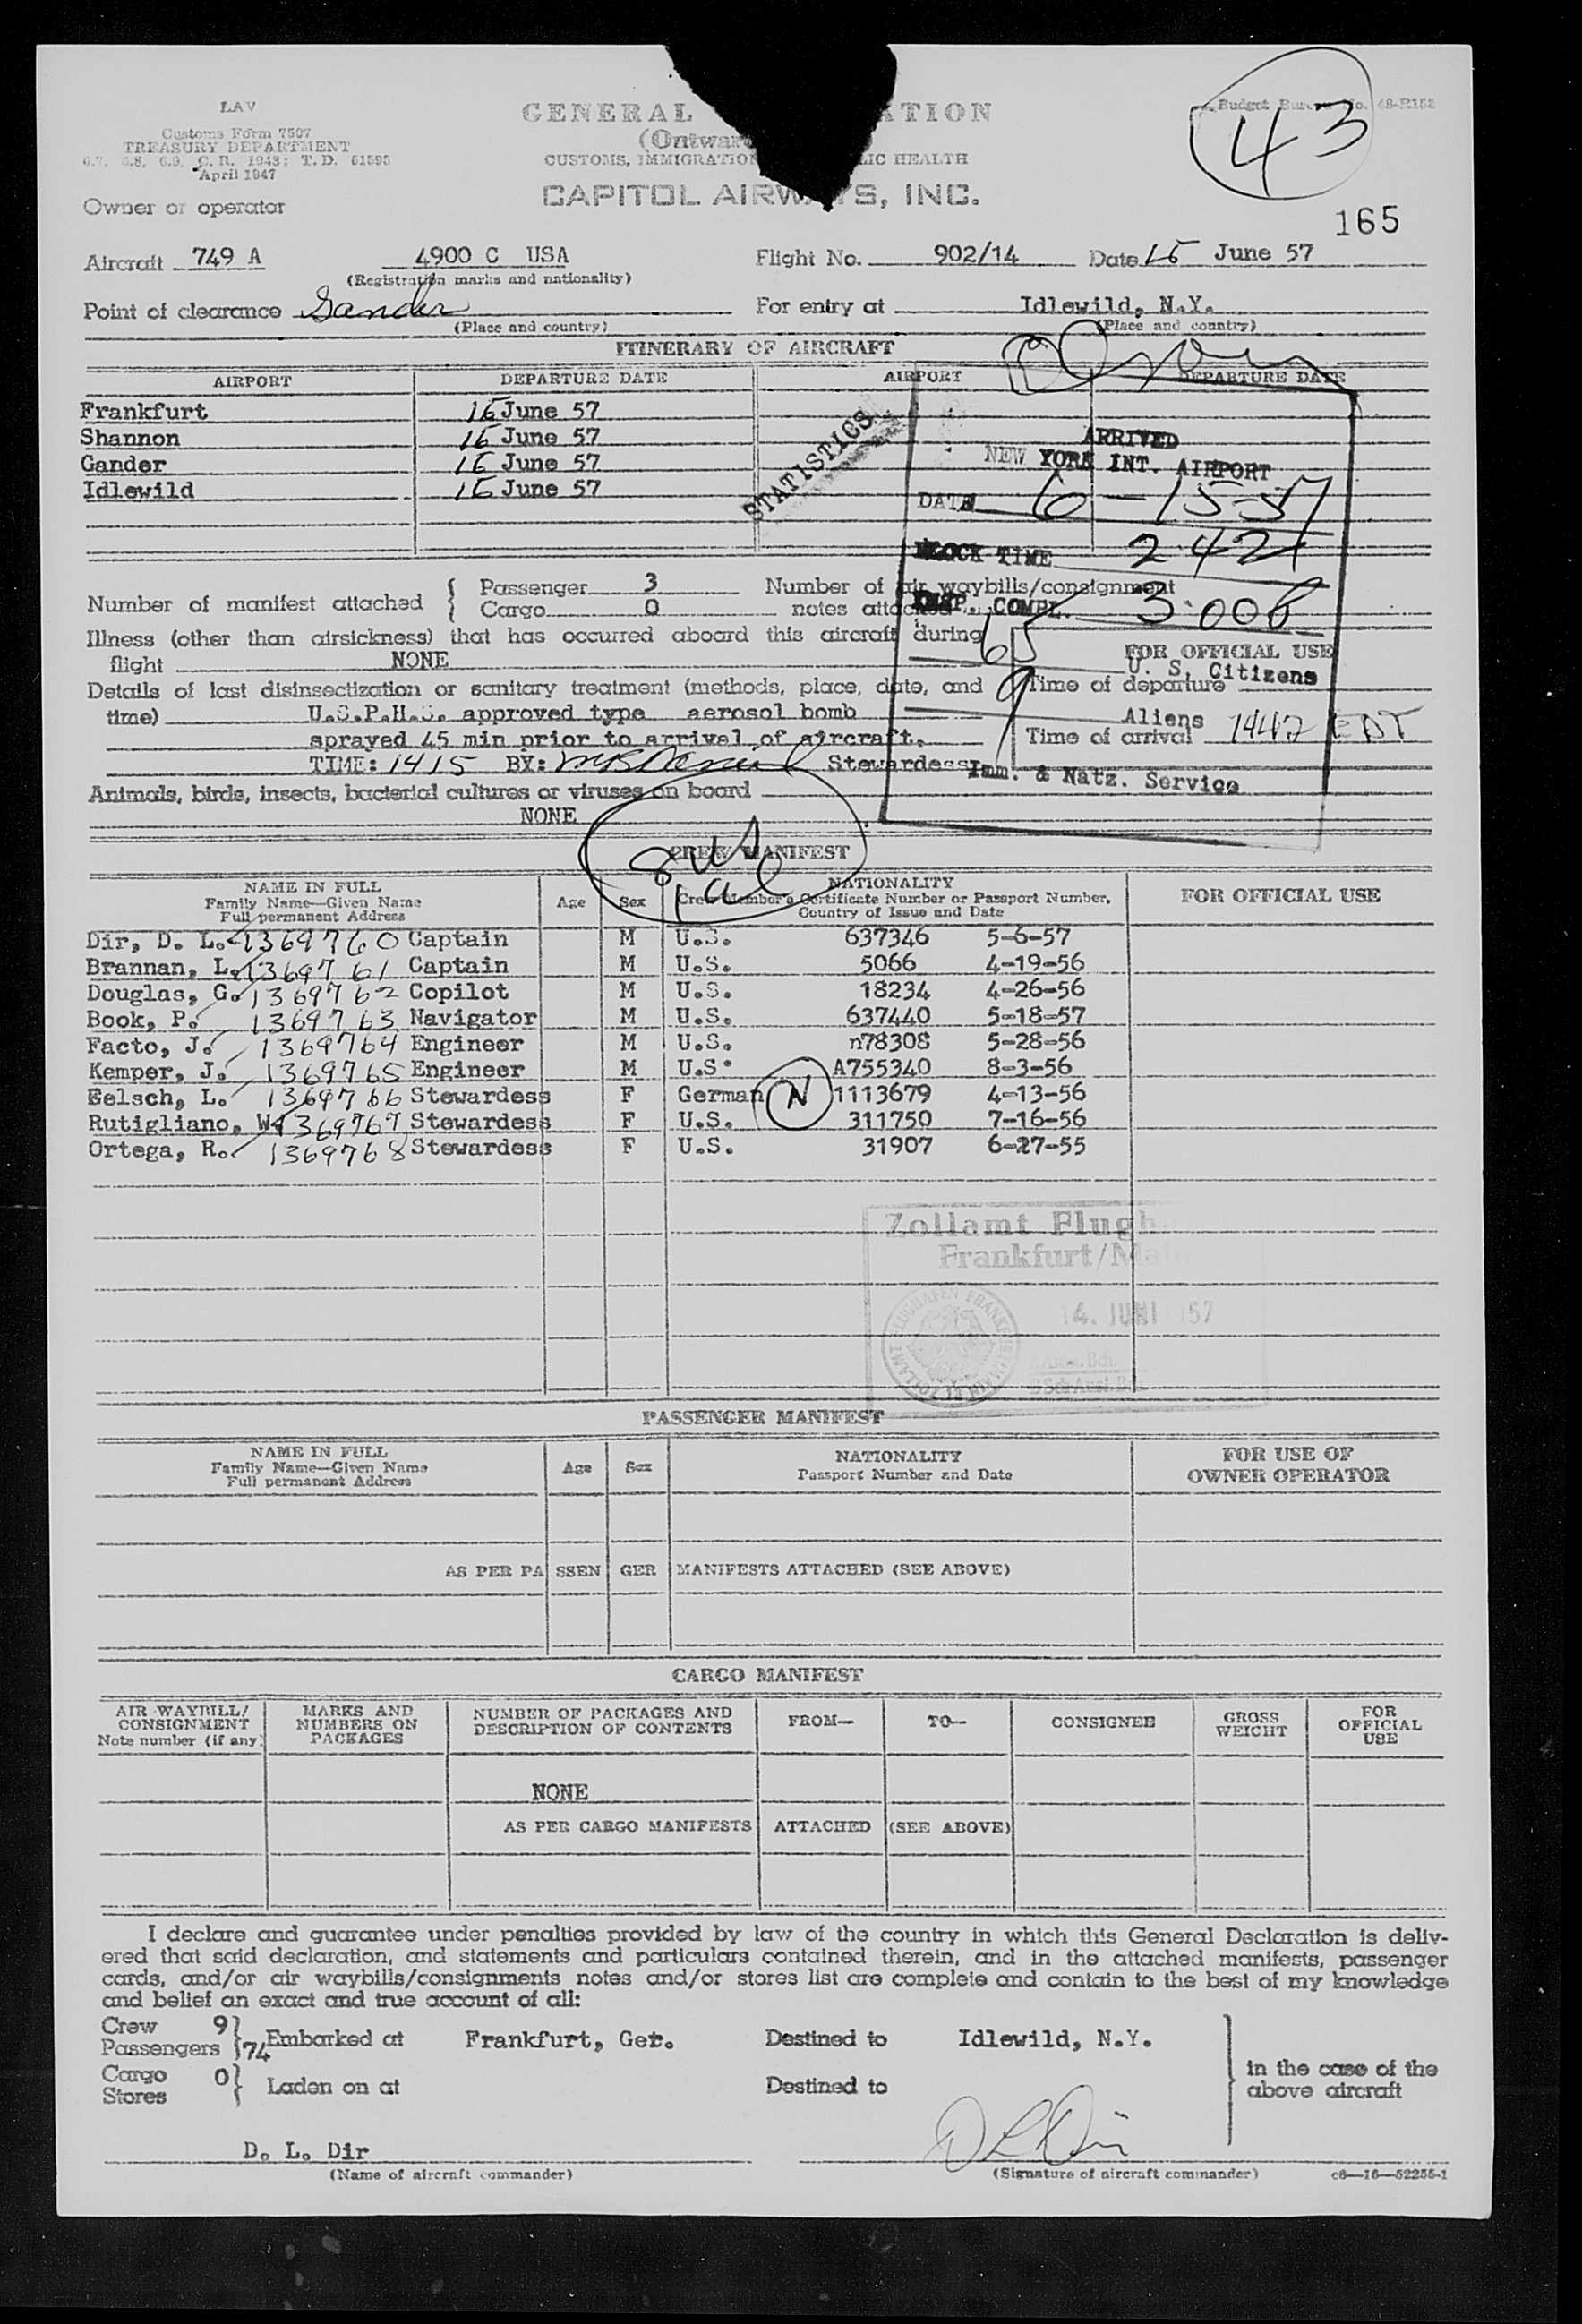 LAV
Customs Form 7507
TREASURY DEPARTMENT
6.7, 6.8, 6.9, C. R. 1943; T. D. 51595
April 1947
GENERAL ATION
(Outwar
CUSTOMS, IMMIGRATION LIC HEALTH
CAPITOL AIRWAYS, INC.
Budget Bureau No. 48-R158
43
165
Owner or operator
Aircraft 749 A 4900 C USA Flight No. 902/14 Date 15 June 57
(Registration marks and nationality)
Point of clearance Gander For entry at Idlewild, N.Y.
(Place and country) (Place and country)
ITINERARY OF AIRCRAFT
AIRPORT DEPARTURE DATE AIRPORT DEPARTURE DATE
Frankfurt 15 June 57
Shannon 15 June 57
Gander 15 June 57
Idlewild 15 June 57
STATISTICS
ARRIVED
NEW YORK INT. AIRPORT
DATE 6-15-57
BLOCK TIME 2:42
INSP. COMPL. 3:00P
65 U. S. Citizens
9 Aliens
Imm. & Natz. Service
Number of manifest attached { Passenger 3 Number of air waybills/consignment
Cargo 0 notes attached
Illness (other than airsickness) that has occurred aboard this aircraft during
flight NONE
FOR OFFICIAL USE
Details of last disinsectization or sanitary treatment (methods, place, date, and Time of departure
time) U.S.P.H.S. approved type aerosol bomb
sprayed 45 min prior to arrival of aircraft. Time of arrival 1442 EDT
TIME: 1415 BY: Stewardess
Animals, birds, insects, bacterial cultures or viruses on board
NONE
8 US
1 al
CREW MANIFEST
NAME IN FULL
Family Name—Given Name
Full permanent Address
Age
Sex
NATIONALITY
Crew Member's Certificate Number or Passport Number,
Country of Issue and Date
FOR OFFICIAL USE
Dir, D. L. 1369760 Captain M U.S. 637346 5-6-57
Brannan, L. 1369761 Captain M U.S. 5066 4-19-56
Douglas, G. 1369762 Copilot M U.S. 18234 4-26-56
Book, P. 1369763 Navigator M U.S. 637440 5-18-57
Facto, J. 1369764 Engineer M U.S. n78308 5-28-56
Kemper, J. 1369765 Engineer M U.S. A755340 8-3-56
Eelsch, L. 1369766 Stewardess F German N 1113679 4-13-56
Rutigliano, W. 1369767 Stewardess F U.S. 311750 7-16-56
Ortega, R. 1369768 Stewardess F U.S. 31907 6-27-55
Zollamt Flugh
Frankfurt/Main
14. JUNI 57
PASSENGER MANIFEST
NAME IN FULL
Family Name—Given Name
Full permanent Address
Age
Sex
NATIONALITY
Passport Number and Date
FOR USE OF
OWNER OPERATOR
AS PER PA SSEN GER MANIFESTS ATTACHED (SEE ABOVE)
CARGO MANIFEST
AIR WAYBILL/
CONSIGNMENT
Note number (if any)
MARKS AND
NUMBERS ON
PACKAGES
NUMBER OF PACKAGES AND
DESCRIPTION OF CONTENTS
FROM—
TO—
CONSIGNEE
GROSS
WEIGHT
FOR
OFFICIAL
USE
NONE
AS PER CARGO MANIFESTS ATTACHED (SEE ABOVE)
I declare and guarantee under penalties provided by law of the country in which this General Declaration is deliv-
ered that said declaration, and statements and particulars contained therein, and in the attached manifests, passenger
cards, and/or air waybills/consignments notes and/or stores list are complete and contain to the best of my knowledge
and belief an exact and true account of all:
Crew 9
Passengers 74 Embarked at Frankfurt, Ger. Destined to Idlewild, N.Y.
Cargo 0
Stores Laden on at Destined to
in the case of the
above aircraft
D. L. Dir D L Dir
(Name of aircraft commander) (Signature of aircraft commander) c6—16—52255-1